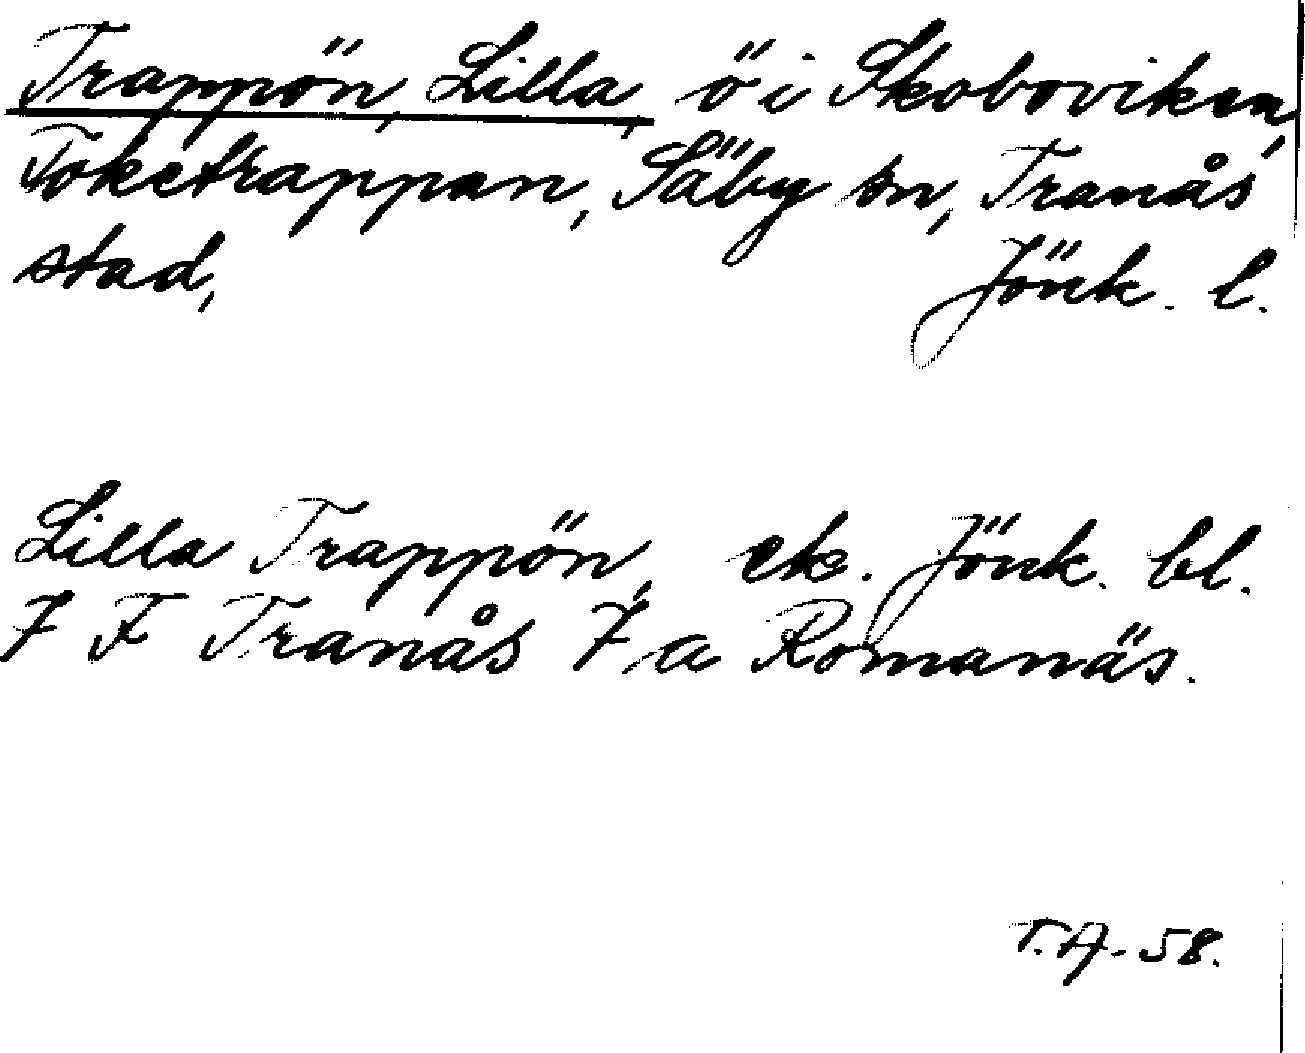 Trappön, Lilla, ö i Skoboviken,
Toketrappan, Säby sn, Tranås
stad, Jönk. l.
Lilla Trappön, ek. Jönk. bl.
7 F Tranås 7, a Romanäs.
T.A. 58.